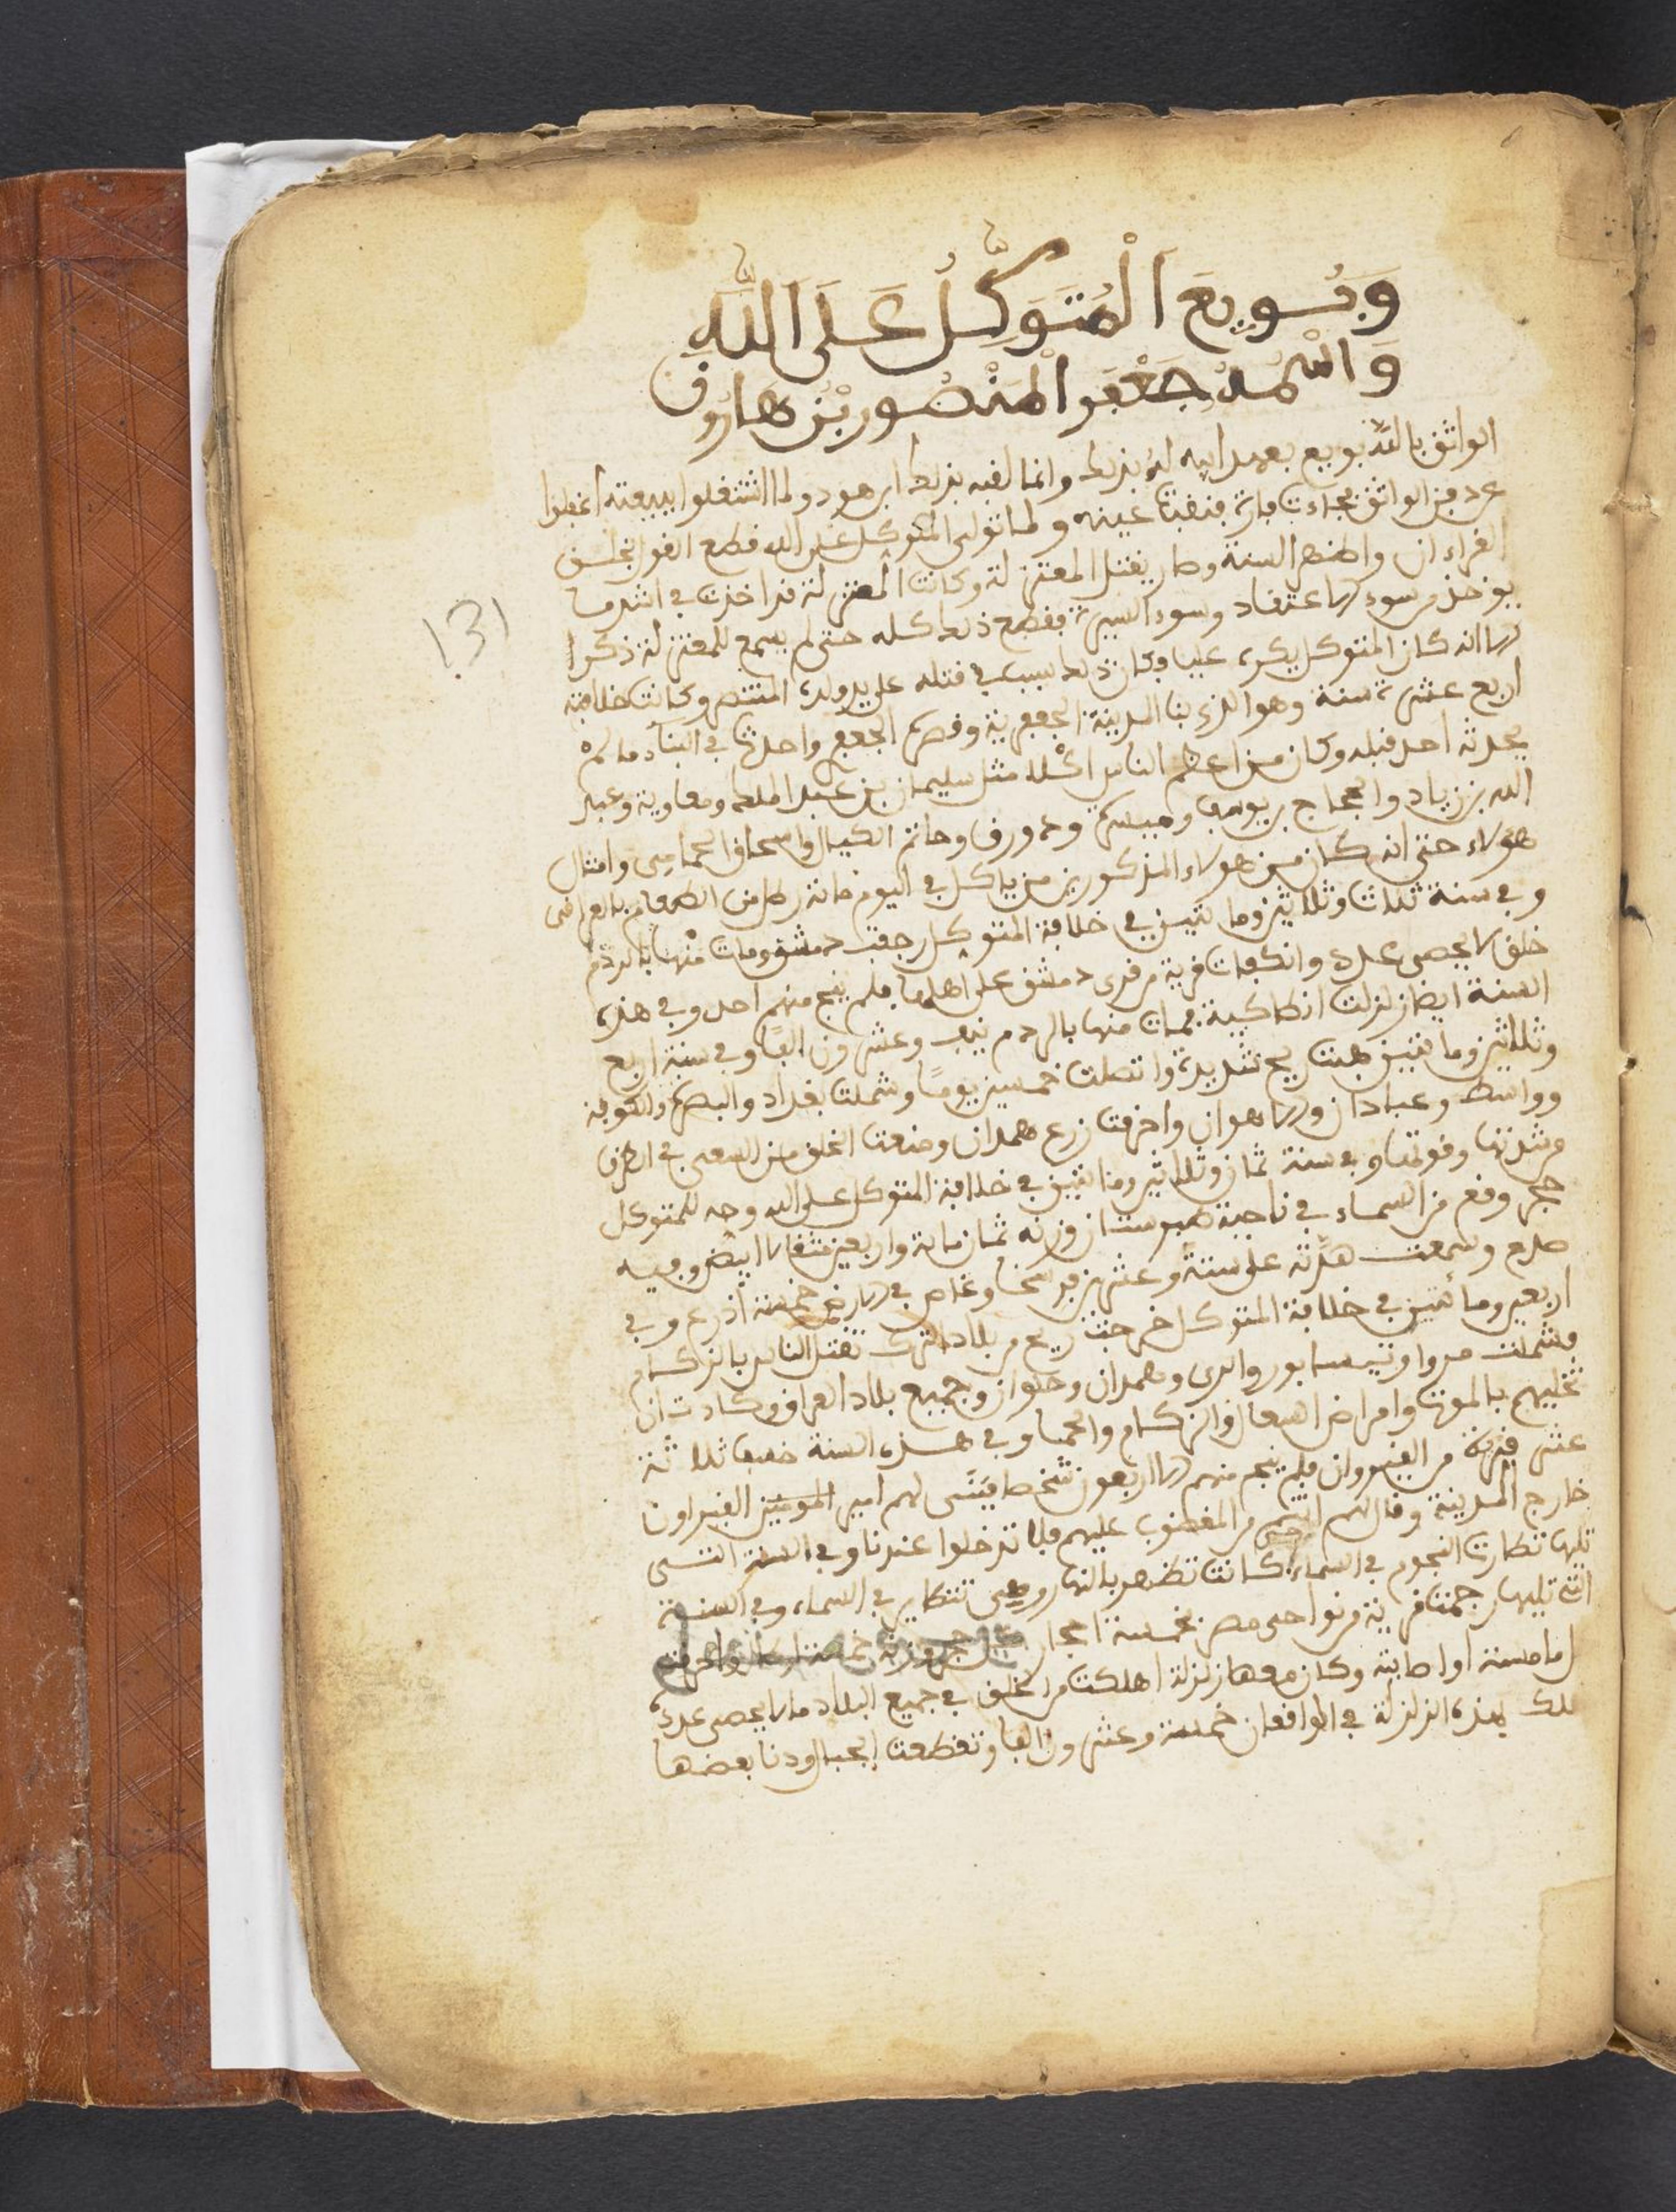 وَبُويِعَ اَلْمُتَوَكِّلُ عَلَى اَللَّهِ
وَاسْمُهُ جَعْفَر الْمَنْصُور بْن هَارُون
الواثق بالله بويع بعهد ابيه له بذلك وانما لقبه بذلك ولما اشتغلوا ببيعته اغفلوا
عن الواثق فجاءت فارة فنقبت عينه ولما تولى المتوكل على الله قطع القول بخلق
القراءان واظهر السنة وصار يقتل المعتزلة وكانت المعتزلة قد اخذت في اشد ما
يوخذ من سوء الاعتقاد وسوء السيرة فقطع ذلك كله حتى لم يسمع للمعتزلة ذكرا
الا انه كان المتوكل يكره عليا وكان ذلك سبب في قتله على يد ولده المنتصر وكانت خلافته
اربع عشرة سنة وهو الذي بنا المدينة الجعفرية وقصره الجعفي واحدث في البناء ما لم
يحدثه احد قبله وكان من اعظم الناس اكلا مثل سليمان بن عبد الملك ومعاوية وعبيد
الله بن زياد والحجاج بن يوسف وميسرة ودورق وحاتم الكيال واسحاق الحمامي وامثال
هولاء حتى انه كان من هولاء المذكورين من ياكل في اليوم مائة رطل من الطعام بالعراقى
وفي سنة ثلاث وثلاثين ومايتين في خلافة المتوكل رجفت دمشق ومات منها بالردم
خلق لا يحصى عدده وانكفات قرية من قرى دمشق على اهلها فلم ينج منهم احد وفي هذه
السنة ايضا زلزلت انطاكية فمات منها بالردم نيف وعشرون الفا وفي سنة اربع
وثلاثين ومايتين هبت ريح شديدة واتصلت خمسين يوما وشملت بغداد والبصرة والكوفة
وواسط وعبادان والاهواز واحرقت زرع همدان ومنعت الخلق من السعي في الطرق
من شدتها وقوتها وفي سنة ثمان وثلاثين ومايتين في خلافة المتوكل على الله وجه للمتوكل
حجر وقع من السماء في ناحية طبرستان وزنه ثمان ماية واربعين مثقالا ابيض وفيه
صدع وسمعت هدته على ستة وعشرين فرسخا وغاص في الارض خمسة اذرع وفي
اربعين ومائتين في خلافة المتوكل خرجت ريح من بلاد الترك تقتل الناس بالزكام
فشملت مروا ونيسابور والرى وهمدان وحلوان وجميع بلاد العراق وكادت ان
تخليهم بالموت وامراض السعال والزكام والحما وفي هذه السنة خسف ثلاثة
عشر قرية من القيروان فلم ينج منهم الا اربعون شخصا فبنى لهم امير المومنين القيراون
خارج المدينة وقال لهم انتم من المغضوب عليهم فلا تدخلوا عندنا وفي السنة التي
تليها تطارت النجوم في السماء حتى كانت تظهر بالنهار وهي تتطاير في السماء وفي السنة
التي تليها رجمت قرية من نواحى مصر بخمسة احجار كل حجر وزنه خمسة ارطال واحرقت
ما مسته او اصابته وكان معها زلزلة اهلكت من الخلق في جميع البلاد ما لا يحصى عدده
هلك بهذه الزلزلة في الوافعان خمسة وعشرون الفا وتقطعت الجبال ودنا بعضها
131